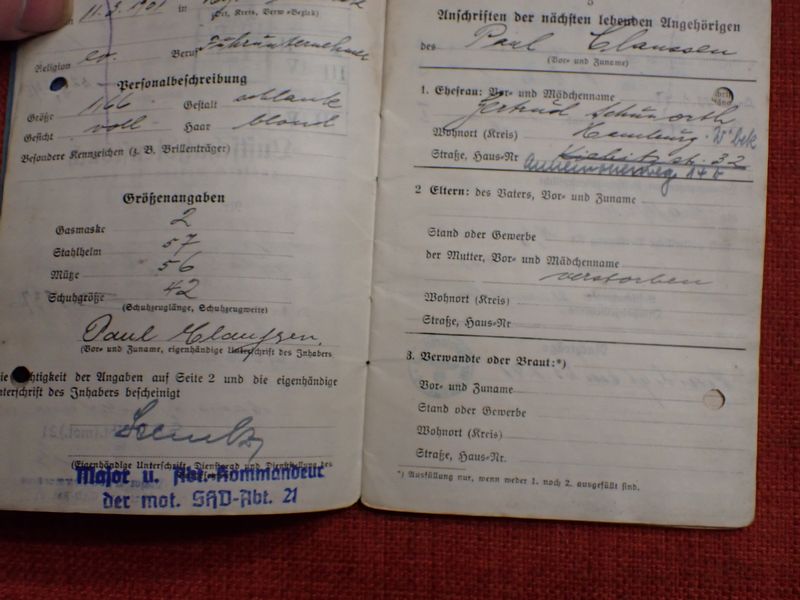 11.3.1901 in
(Ort, Kreis, Verw.-Bezirk)
Religion ev. Beruf Fuhrunternehmer
Personalbeschreibung
Größe 1,66 Gestalt schlank
Gesicht voll Haar blond
Besondere Kennzeichen (z. B. Brillenträger)
Größenangaben
Gasmaske 2
Stahlhelm 57
Mütze 56
Schuhgröße 42
(Schuhzeuglänge, Schuhzeugweite)
Paul Claussen.
(Vor- und Zuname, eigenhändige Unterschrift des Inhabers
htigkeit der Angaben auf Seite 2 und die eigenhändige
nterschrift des Inhabers bescheinigt
(Eigenhändige Unterschrift, Dienstgrad und Dienststellung des
Major u. Abt.-Kommandeur
der mot. SHD-Abt. 21
Anschriften der nächsten lebenden Angehörigen
des Paul Claussen
(Vor- und Zuname)
1. Ehefrau: Vor- und Mädchenname
Gertrud
Wohnort (Kreis) Hamburg-W'bek
Straße, Haus-Nr
2 Eltern: des Vaters, Vor- und Zuname
Stand oder Gewerbe
der Mutter, Vor- und Mädchenname
verstorben
Wohnort (Kreis)
Straße, Haus-Nr
3. Verwandte oder Braut:*)
Vor- und Zuname
Stand oder Gewerbe
Wohnort (Kreis)
Straße, Haus-Nr.
*) Ausfüllung nur, wenn weder 1. noch 2. ausgefüllt sind.